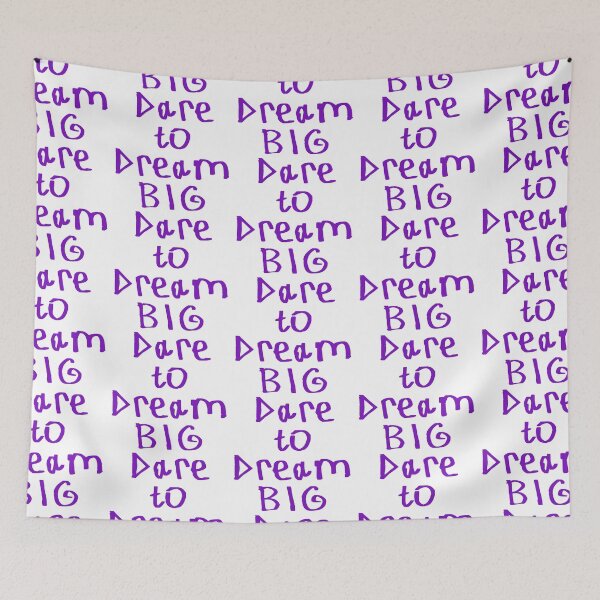 to
eam
BIG
are
to
eam
BIG
are
to
eam
BIG
are
to
eam
BIG
BIG
Dare
to
Dream
BIG
Dare
to
Dream
BIG
Dare
to
Dream
BIG
Dare
to
Dream
to
Dream
BIG
Dare
to
Dream
BIG
Dare
to
Dream
BIG
Dare
to
Dream
BIG
BIG
Dare
to
Dream
BIG
Dare
to
Dream
BIG
Dare
to
Dream
BIG
Dare
to
Dream
to
Dream
BIG
Dare
to
Dream
BIG
Dare
to
Dream
BIG
Dare
to
Dream
BIG